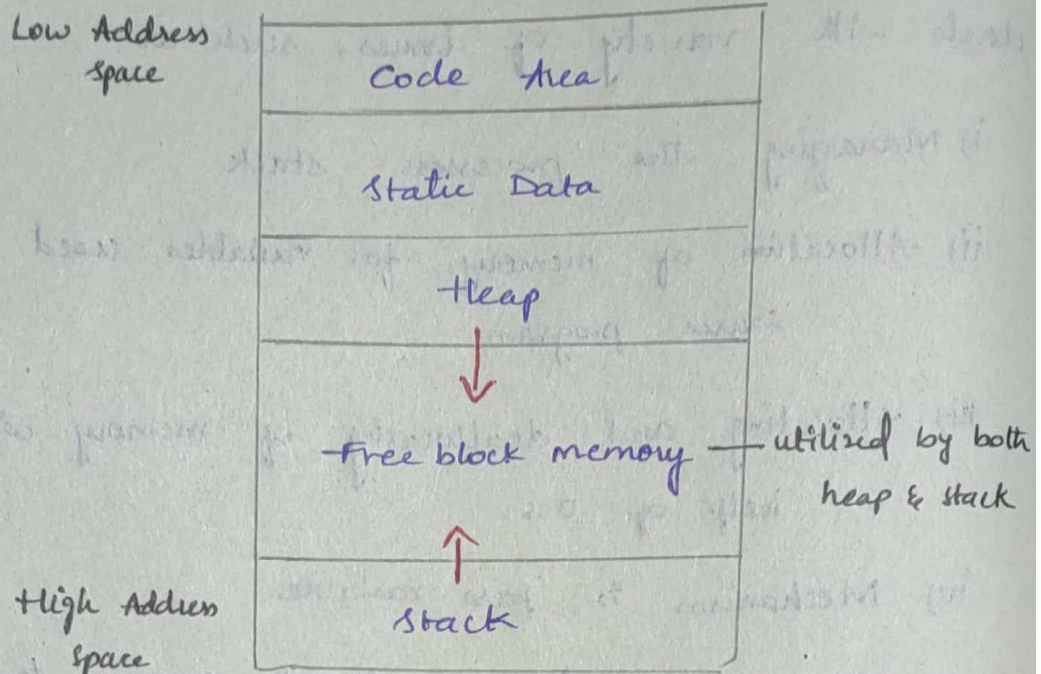 Low Address
Space
Code Area
Static Data
Heap
Free block memory — utilized by both
heap & stack
High Address
Space
Stack